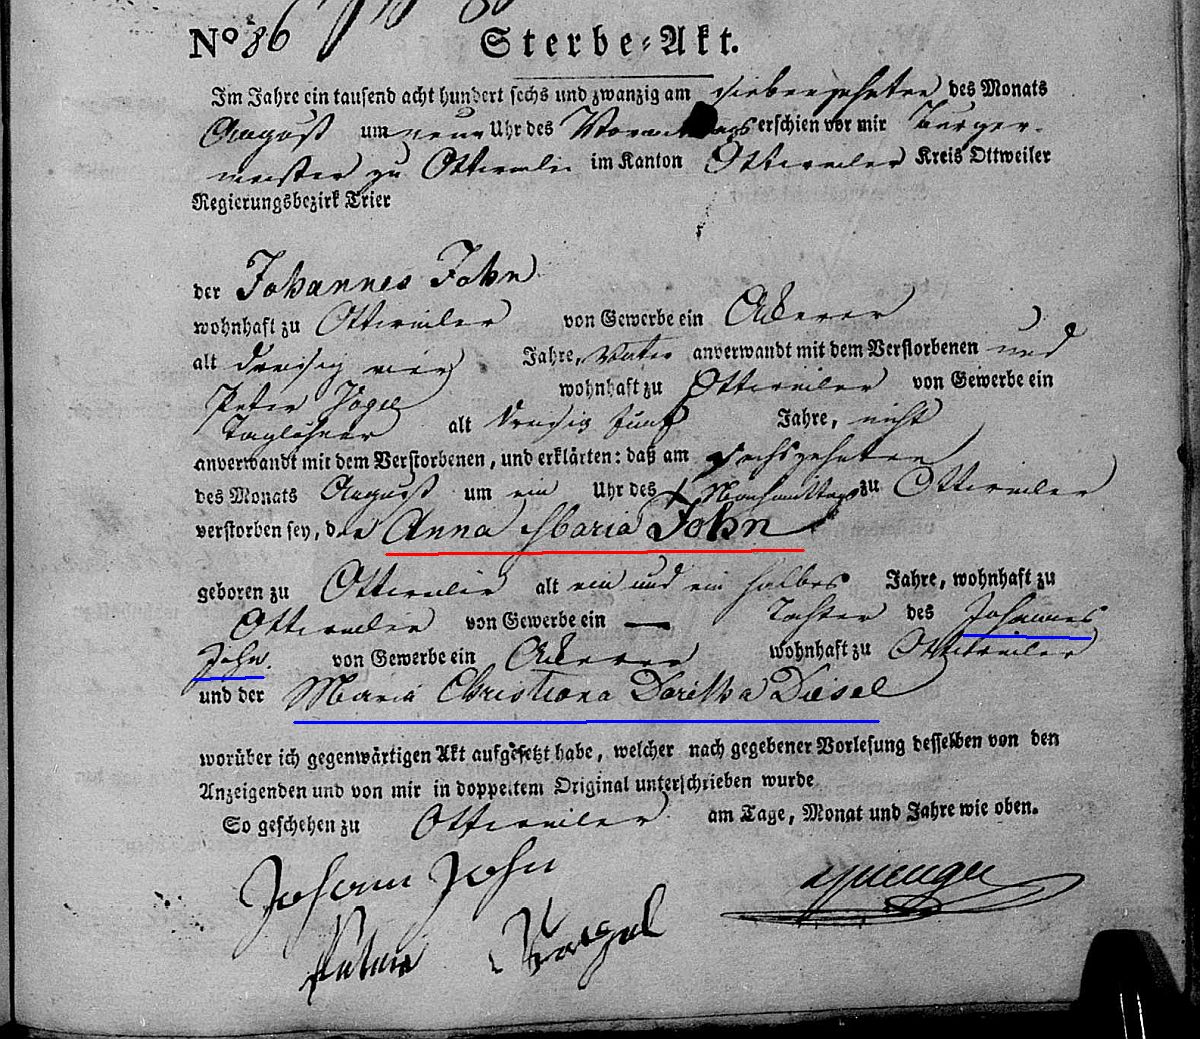 No 86 Sterbe-Akt.
Im Jahre ein tausend acht hundert sechs und zwanzig am siebenzehnten des Monats
August um neun Uhr des Vormittags erschien vor mir Burger-
meister zu Ottweiler im Kanton Ottweiler Kreis Ottweiler
Regierungsbezirk Trier
der Johannes John
wohnhaft zu Ottweiler von Gewerbe ein Ackerer
alt dreisig vier Jahre, Vater anverwandt mit dem Verstorbenen und
Peter Vogel wohnhaft zu Ottweiler von Gewerbe ein
Taglöhner alt dreisig fünf Jahre, nicht
anverwandt mit dem Verstorbenen, und erklärten: daß am sechszehnten
des Monats August um ein Uhr des Nachmittags zu Ottweiler
verstorben sey, die Anna Maria John
geboren zu Ottweiler alt ein und ein halbes Jahre, wohnhaft zu
Ottweiler von Gewerbe ein — Tochter des Johannes
John. von Gewerbe ein Ackerer wohnhaft zu Ottweiler
und der Maria Christiana Doretha Diesel
worüber ich gegenwärtigen Akt aufgesetzt habe, welcher nach gegebener Vorlesung desselben von den
Anzeigenden und von mir in doppeltem Original unterschrieben wurde
So geschehen zu Ottweiler am Tage, Monat und Jahre wie oben.
Johann John
Vogel